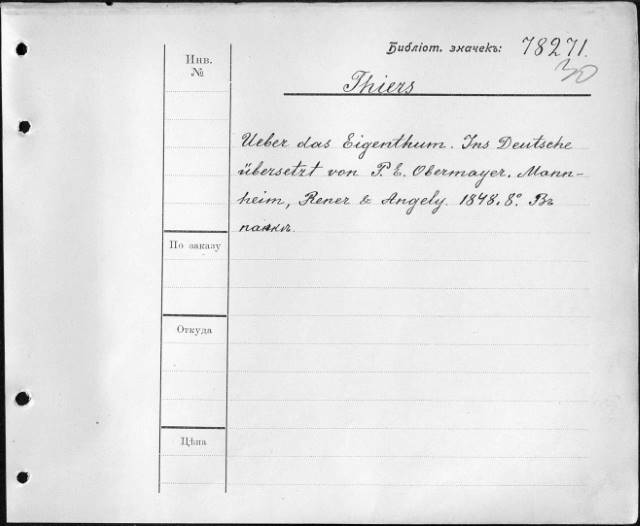 Библіот. значекъ: 78271.
30
Инв.
№
Thiers
Ueber das Eigenthum. Ins Deutsche
übersetzt von P. E. Obermayer. Mann-
heim, Rener & Angely. 1848. 8º. Въ
папкѣ.
По заказу
Откуда
Цѣна